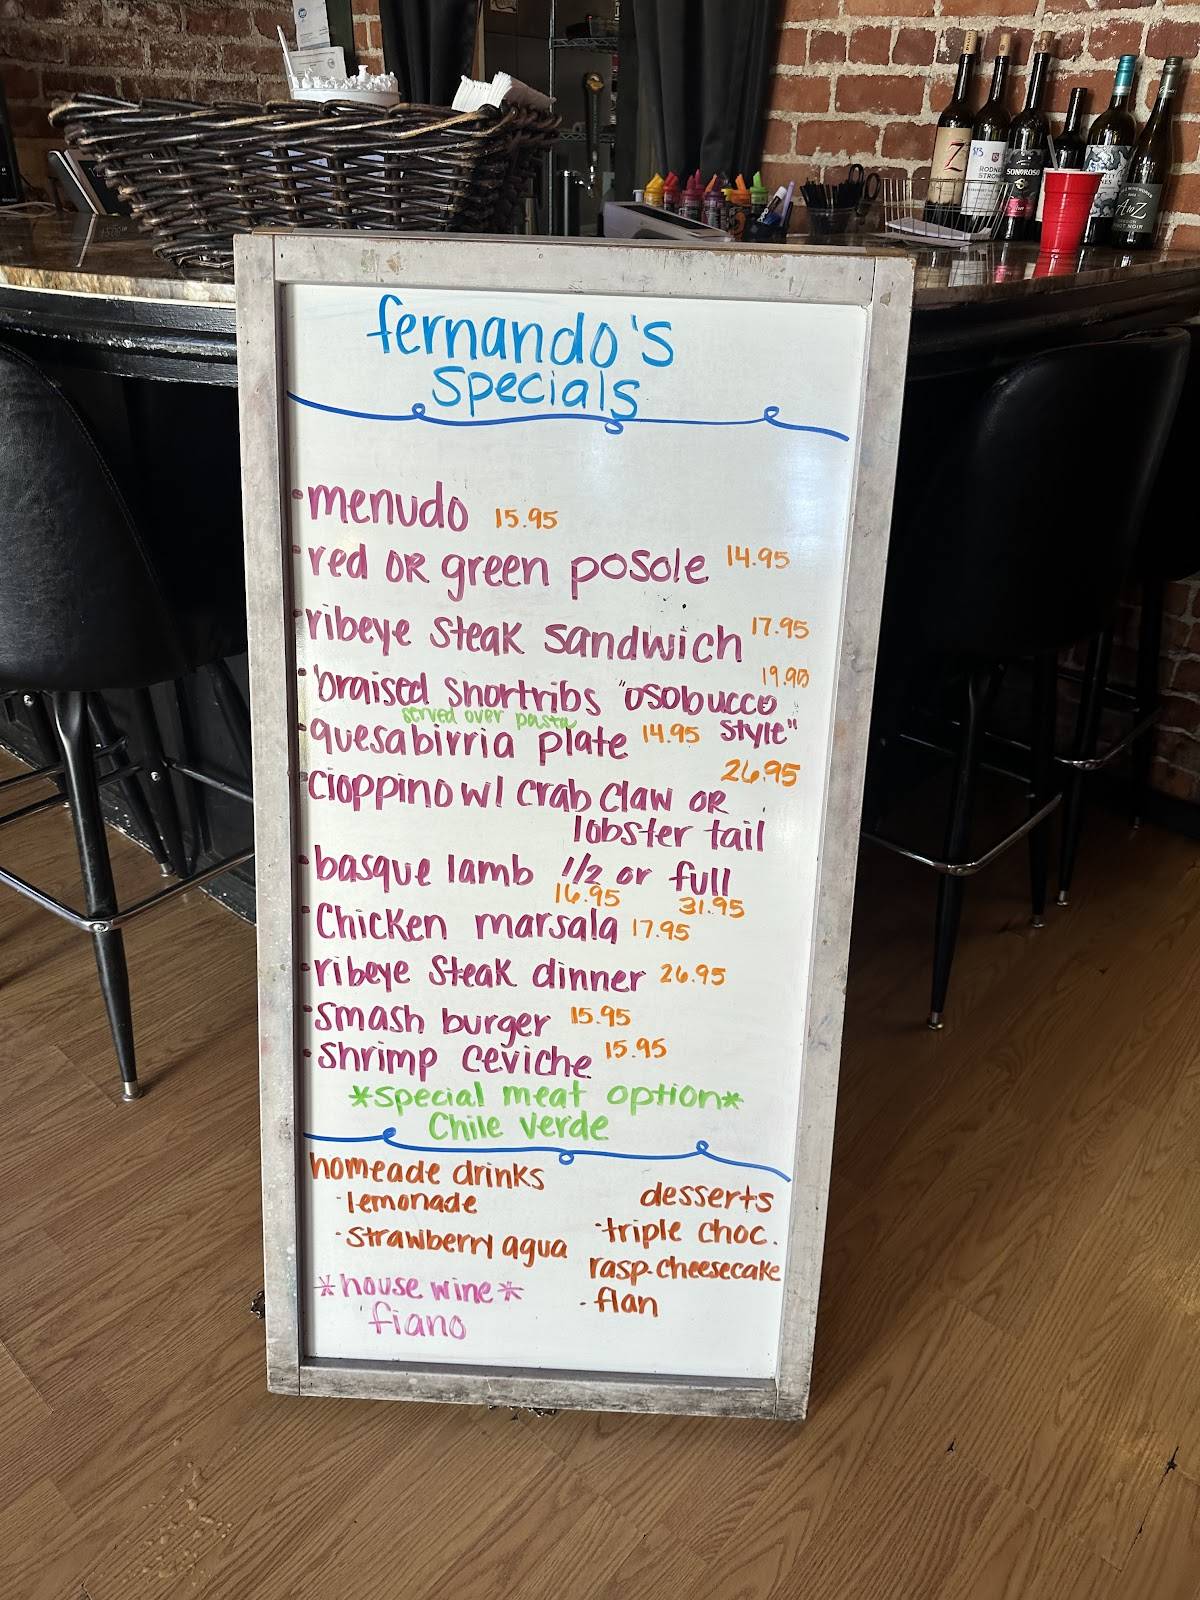 fernando's
specials
• menudo 15.95
• red OR green posole 14.95
• ribeye steak sandwich 17.95
19.95
• braised shortribs "osobucco
style"
served over pasta
• quesabirria plate 14.95
26.95
• cioppino w/ crab claw OR
lobster tail
• basque lamb 1/2 or full
16.95 31.95
• Chicken marsala 17.95
• ribeye Steak dinner 26.95
• smash burger 15.95
• shrimp ceviche 15.95
*special meat option*
Chile verde
homeade drinks
- lemonade
- strawberry agua
*house wine*
fiano
desserts
- triple choc.
rasp. cheesecake
- flan
Z
$13
RODNEY
STRONG
SONOROSO
A to Z
PINOT NOIR